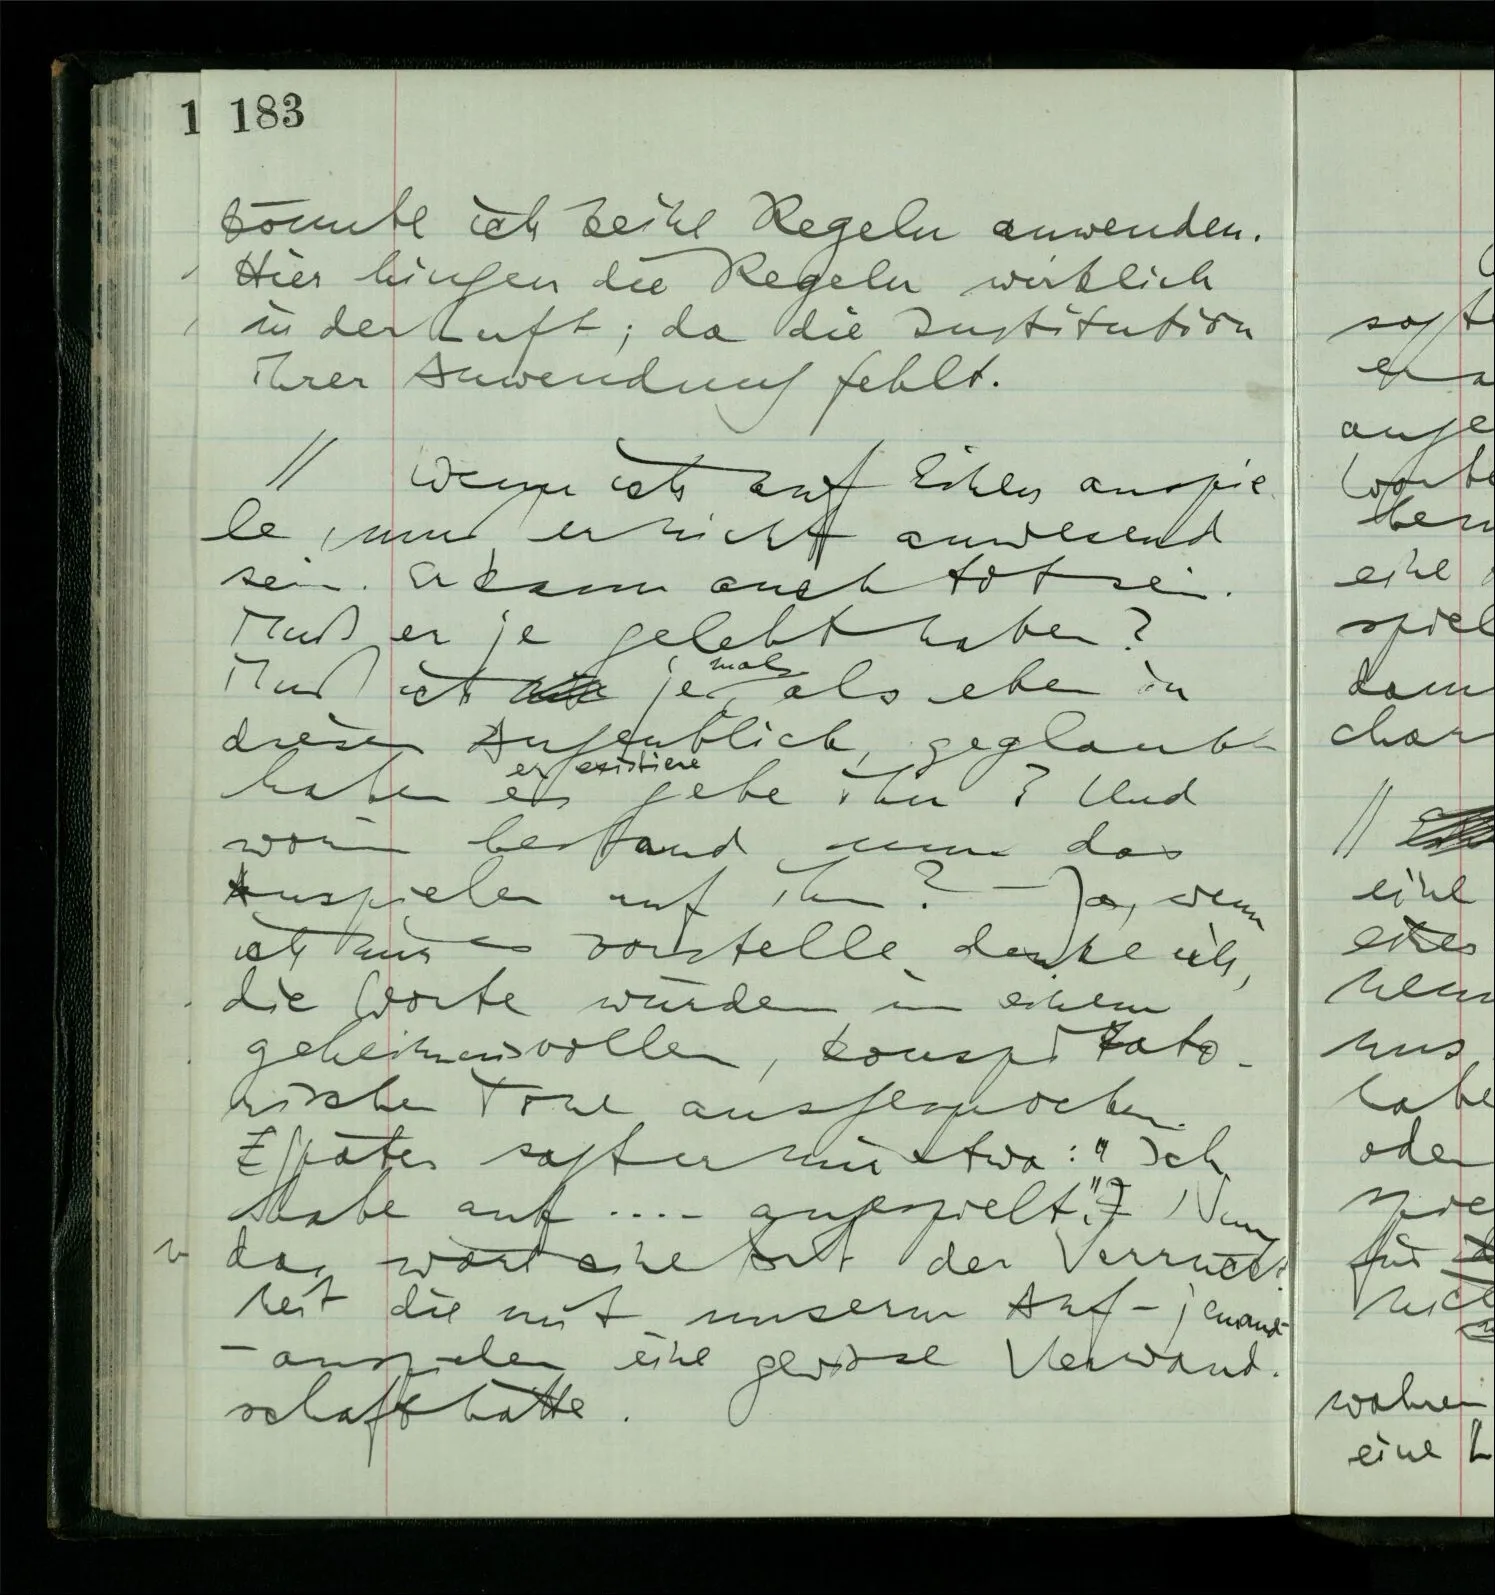 1 183
könnte ich keine Regeln anwenden.
Hier hingen die Regeln wirklich
in der Luft; da die Institution
ihrer Anwendung fehlt.
// Wenn ich auf Einen anspie
le, muß er nicht anwesend
sein. Er kann auch tot sein.
Muß er je gelebt haben?
mals
Muß ich je, als eben in
diesem Augenblick, geglaubt
er existiere
haben es gebe ihn? Und
worin bestand nun das
Anspielen auf ihn? – Ja, wenn
ich mir's vorstelle, denke ich,
die Worte würden in einem
geheimnisvollen, konspirato-
rischen Tone ausgesprochen.
Später sagt er mir etwa: "Ich
habe auf .... angespielt". Nun
das wäre eine Art der Verrückt
heit die mit unserm Auf-jemand-
-anspielen eine gewisse Verwand-
schaft hätte.
sagte
ange
Worte
eine
spiel
dann
char
//
eine
eines
uns
habe
oder
spie
für
wahren
eine